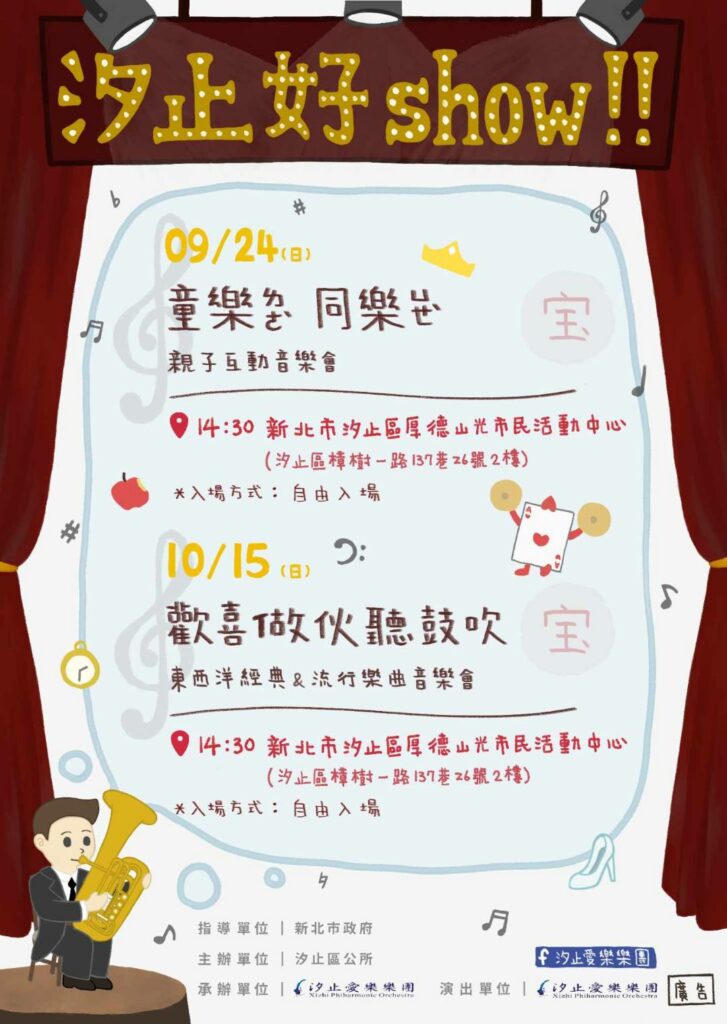 汐止好show!!
09/24(日)
童樂ㄉㄜ 同樂ㄓㄜ
宝
親子互動音樂會
14:30 新北市汐止區厚德山光市民活動中心
(汐止區樟樹一路137巷26號2樓)
*入場方式：自由入場
A
A
10/15(日)
歡喜做伙聽鼓吹
宝
東西洋經典&流行樂曲音樂會
14:30 新北市汐止區厚德山光市民活動中心
(汐止區樟樹一路137巷26號2樓)
*入場方式：自由入場
指導單位｜新北市政府
主辦單位｜汐止區公所
f 汐止愛樂樂團
承辦單位｜汐止愛樂樂團 演出單位｜汐止愛樂樂團 廣告
Xizhi Philharmonic Orchestra Xizhi Philharmonic Orchestra